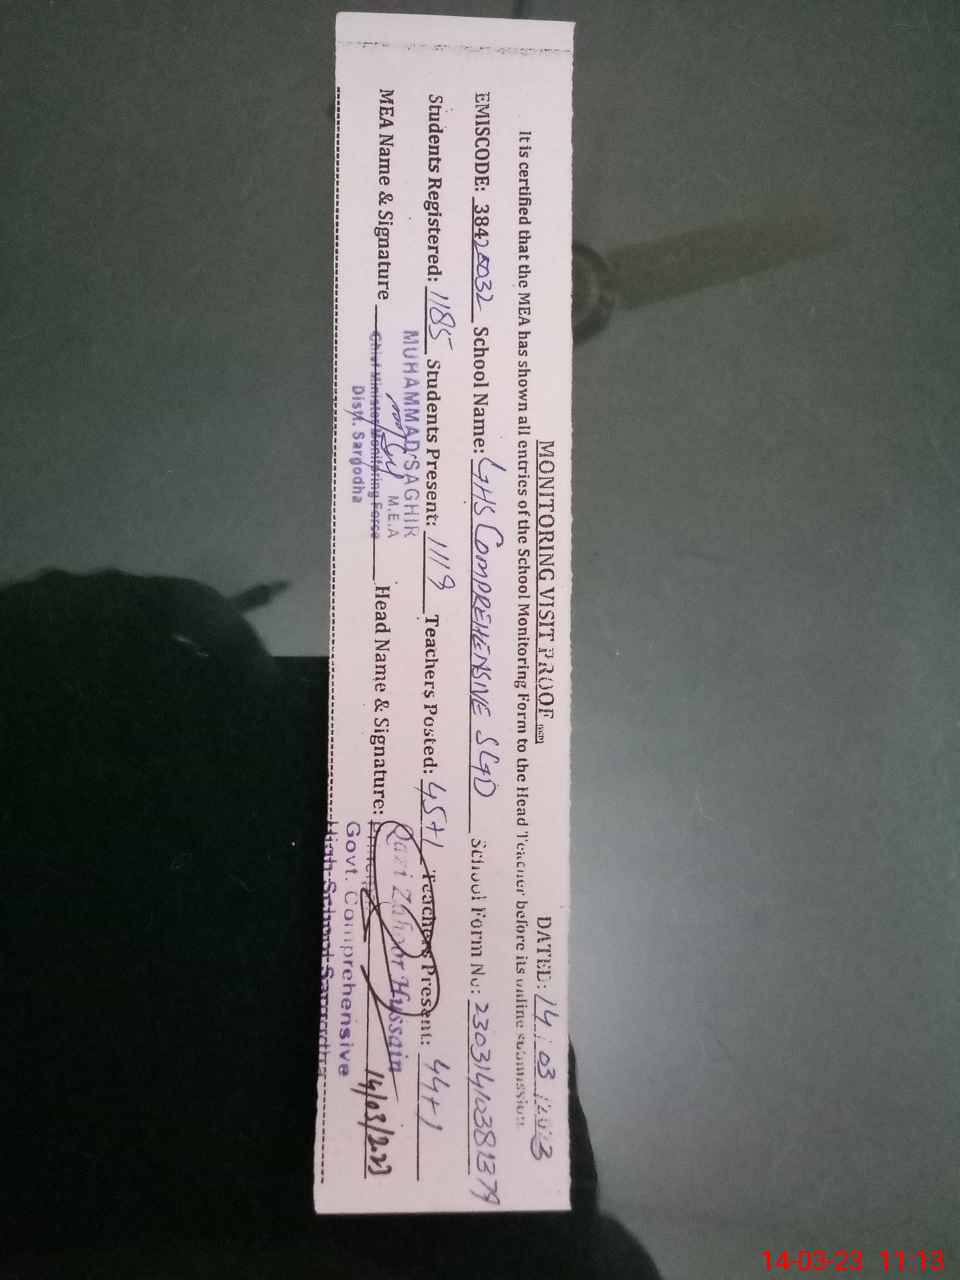 MONITORING VISIT PROOF DATED: 14/03/2023
It is certified that the MEA has shown all entries of the School Monitoring Form to the Head Teacher before its online submission.
EMISCODE: 38420032 School Name: GHS COMPREHENSIVE SGD School Form No: 23031410381379
Students Registered: 1185 Students Present: 1119 Teachers Posted: 45+1 Teachers Present: 44+1
MEA Name & Signature Head Name & Signature:
MUHAMMAD SAGHIR
M.E.A
Chief Minister Monitoring Force
Distt. Sargodha
Qazi Zahoor Hussain
Govt. Comprehensive
High School Sargodha
14/03/2023
14-03-23 11:13